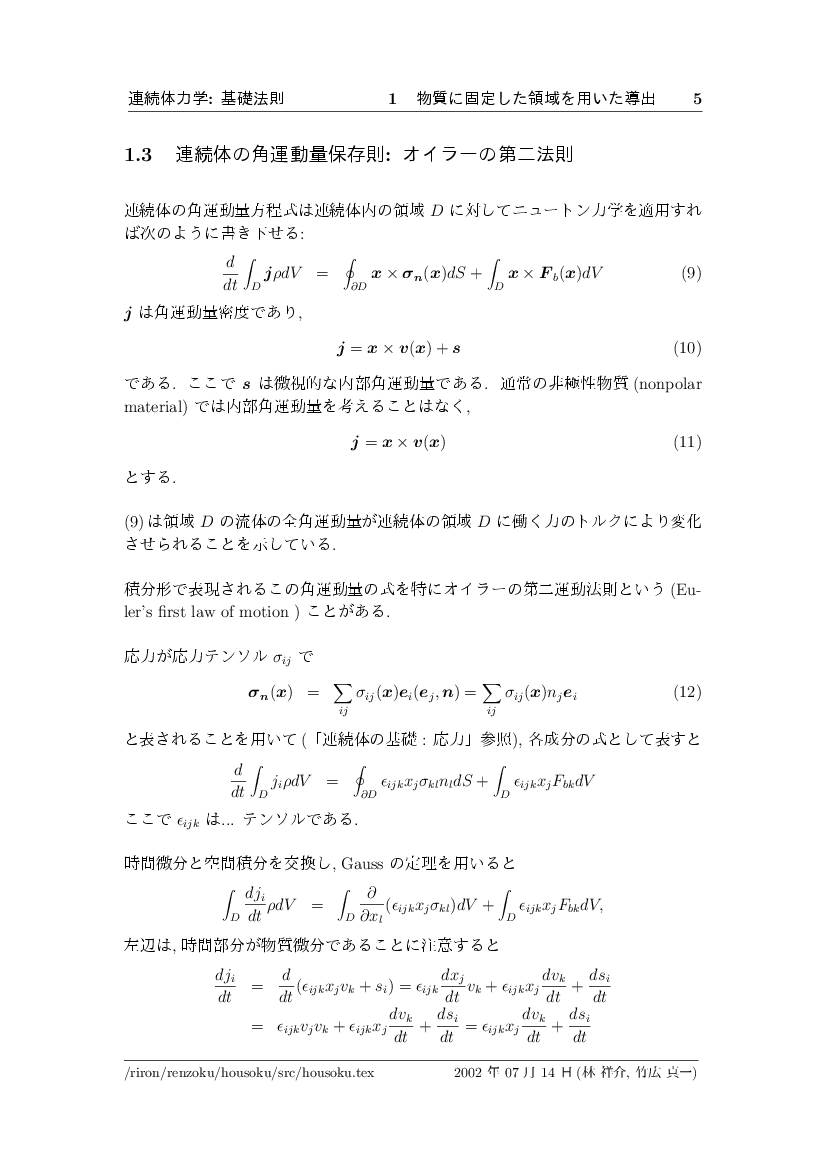 連続体力学: 基礎法則 1 物質に固定した領域を用いた導出 5
1.3 連続体の角運動量保存則: オイラーの第二法則
連続体の角運動量方程式は連続体内の領域 D に対してニュートン力学を適用すれ
ば次のように書き下せる:
d/dt ∫_D jρdV = ∮_∂D x × σ_n(x)dS + ∫_D x × F_b(x)dV (9)
j は角運動量密度であり,
j = x × v(x) + s (10)
である. ここで s は微視的な内部角運動量である. 通常の非極性物質 (nonpolar
material) では内部角運動量を考えることはなく,
j = x × v(x) (11)
とする.
(9) は領域 D の流体の全角運動量が連続体の領域 D に働く力のトルクにより変化
させられることを示している.
積分形で表現されるこの角運動量の式を特にオイラーの第二運動法則という (Eu-
ler's first law of motion ) ことがある.
応力が応力テンソル σ_ij で
σ_n(x) = ∑_ij σ_ij(x)e_i(e_j, n) = ∑_ij σ_ij(x)n_j e_i (12)
と表されることを用いて (「連続体の基礎 : 応力」参照), 各成分の式として表すと
d/dt ∫_D j_i ρdV = ∮_∂D ϵ_ijk x_j σ_kl n_l dS + ∫_D ϵ_ijk x_j F_bk dV
ここで ϵ_ijk は... テンソルである.
時間微分と空間積分を交換し, Gauss の定理を用いると
∫_D dj_i/dt ρdV = ∫_D ∂/∂x_l (ϵ_ijk x_j σ_kl)dV + ∫_D ϵ_ijk x_j F_bk dV,
左辺は, 時間部分が物質微分であることに注意すると
dj_i/dt = d/dt (ϵ_ijk x_j v_k + s_i) = ϵ_ijk dx_j/dt v_k + ϵ_ijk x_j dv_k/dt + ds_i/dt
= ϵ_ijk v_j v_k + ϵ_ijk x_j dv_k/dt + ds_i/dt = ϵ_ijk x_j dv_k/dt + ds_i/dt
/riron/renzoku/housoku/src/housoku.tex 2002 年 07 月 14 日 (林 祥介, 竹広 真一)